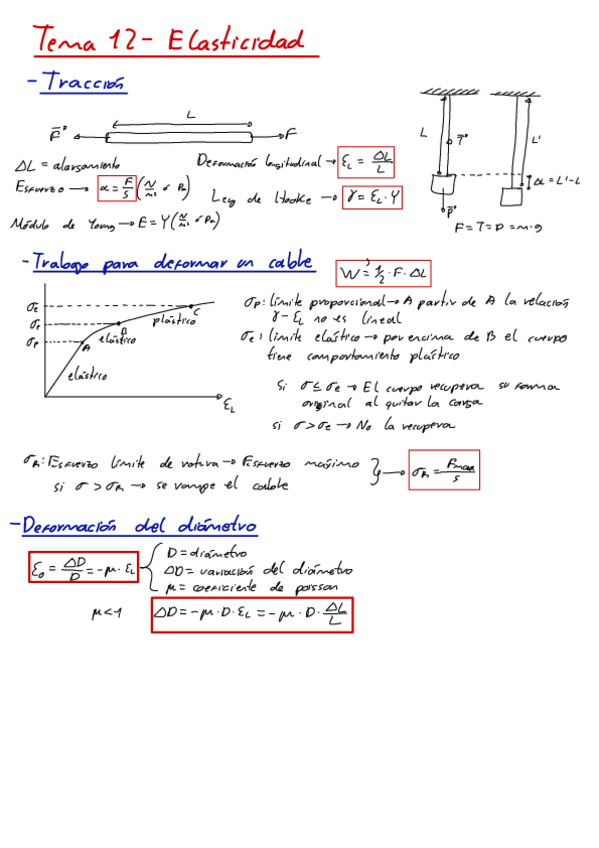 Tema 12- Elasticidad
- Tracción
L
F F
ΔL = alargamiento
Deformación longitudinal → ε_L = ΔL/L
Esfuerzo → α = F/S (N/m² ó Pa)
Ley de Hooke → γ = ε_L · Y
Módulo de Young → E = Y (N/m² ó Pa)
L T L'
ΔL = L'-L
P
F = T = P = m·g
- Trabajo para deformar un cable
W = 1/2 · F · ΔL
σ_e C
σ_e B plástico
σ_P A elástico
elástico
ε_L
σ_P: límite proporcional → A partir de A la relación
γ - ε_L no es lineal
σ_e: límite elástico → por encima de B el cuerpo
tiene comportamiento plástico
Si σ ≤ σ_e → El cuerpo recupera su forma
original al quitar la carga
si σ > σ_e → No la recupera
σ_R: Esfuerzo límite de rotura → Esfuerzo máximo
si σ > σ_R → se rompe el cable
} → σ_R = F_max/S
- Deformación del diámetro
ε_D = ΔD/D = -μ · ε_L
D = diámetro
ΔD = variación del diámetro
μ = coeficiente de poisson
μ < 1
ΔD = -μ · D · ε_L = -μ · D · ΔL/L